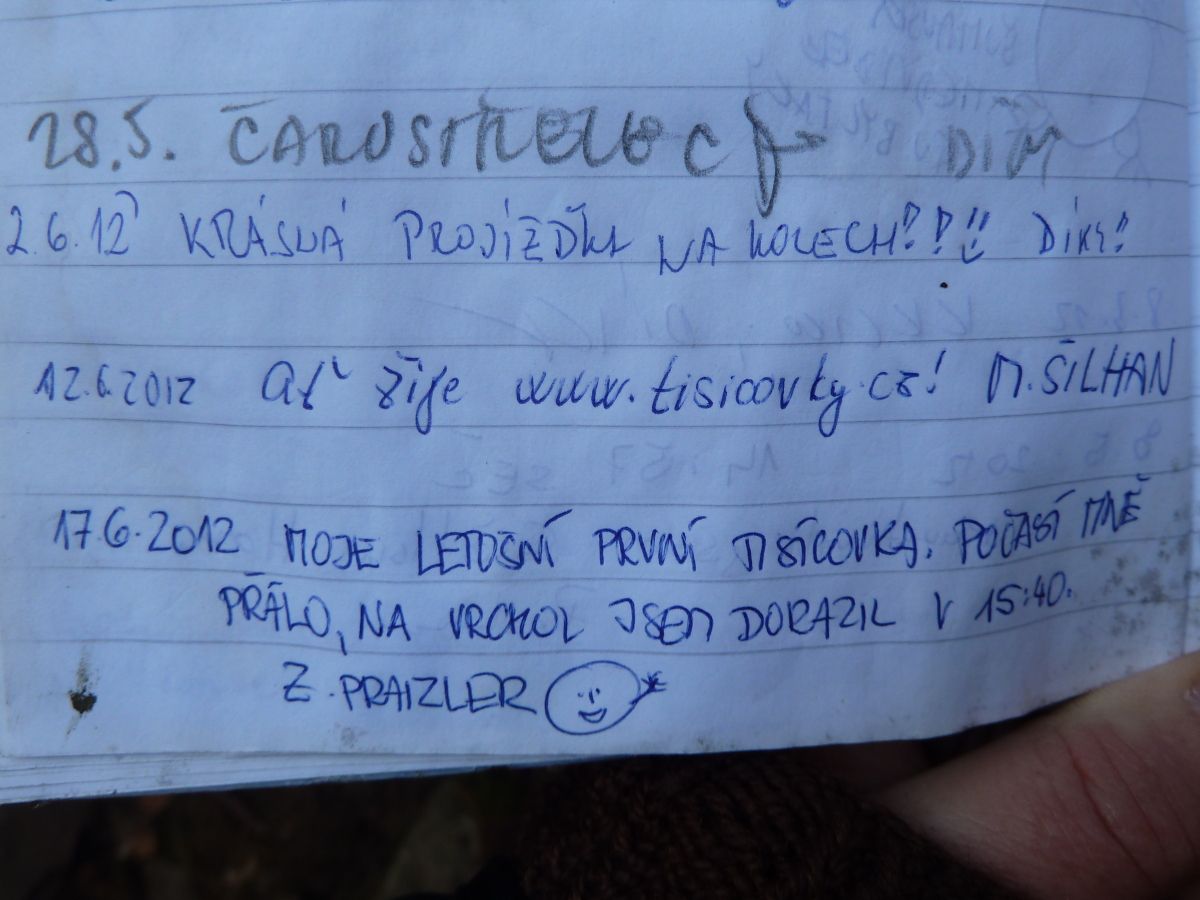 28.5. ČAROSTŘELEC
2.6.12 KRÁSNÁ PROJÍŽĎKA NA KOLECH!!!! DÍKY!
12.6.2012 Ať žije www.tisicovky.cz! M. ŠILHAN
17.6.2012 MOJE LETOŠNÍ PRVNÍ TISÍCOVKA. POČASÍ MNĚ
PŘÁLO, NA VRCHOL JSEM DORAZIL V 15:40.
Z. PRAIZLER